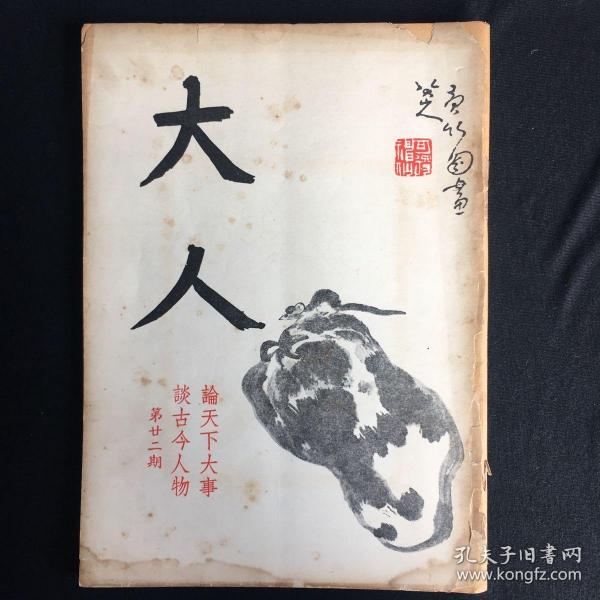 大人
論天下大事
談古今人物
第廿二期
八大
孔夫子旧书网
www.kongfz.com